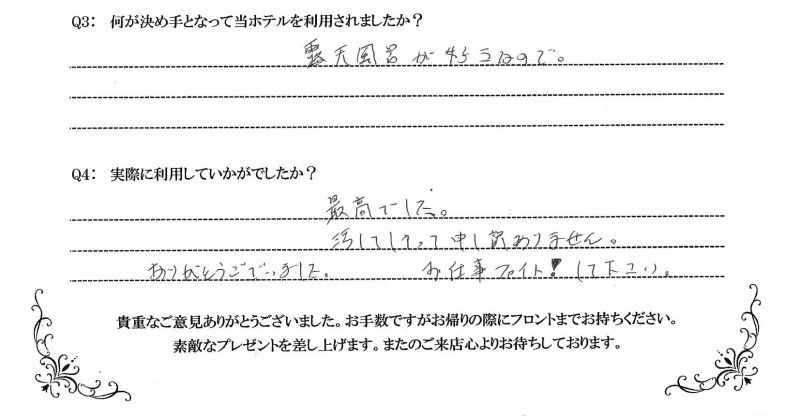 Q3: 何が決め手となって当ホテルを利用されましたか?
露天風呂が
なので。
Q4: 実際に利用していかがでしたか?
最高でした。
汚してしまって申し訳ありません。
ありがとうございました。 お仕事ファイト!して下さい。
貴重なご意見ありがとうございました。お手数ですがお帰りの際にフロントまでお持ちください。
素敵なプレゼントを差し上げます。またのご来店心よりお待ちしております。